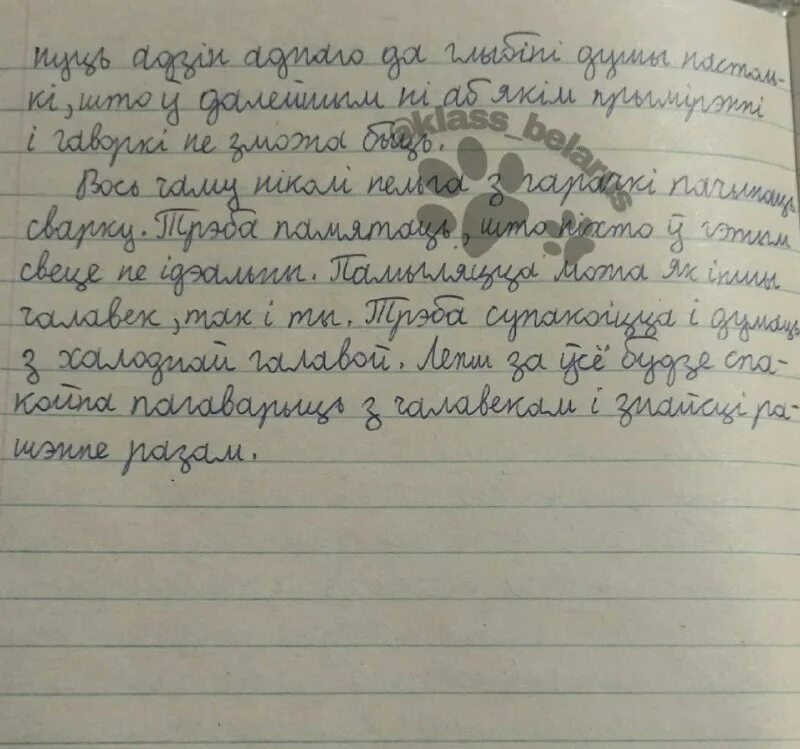 нуць адзін аднаго да глыбіні душы настоль-
кі, што ў далейшым ні аб якім прымірэнні
і гаворкі не зможа быць.
Вось чаму ніколі нельга з гарачкі пачынаць
сварку. Трэба памятаць, што ніхто ў гэтым
свеце не ідэальны. Памыляцца можа як іншы
чалавек, так і ты. Трэба супакоіцца і думаць
з халоднай галавой. Лепш за ўсё будзе спа-
койна пагаварыць з чалавекам і знайсці ра-
шэнне разам.
@klass_belarus